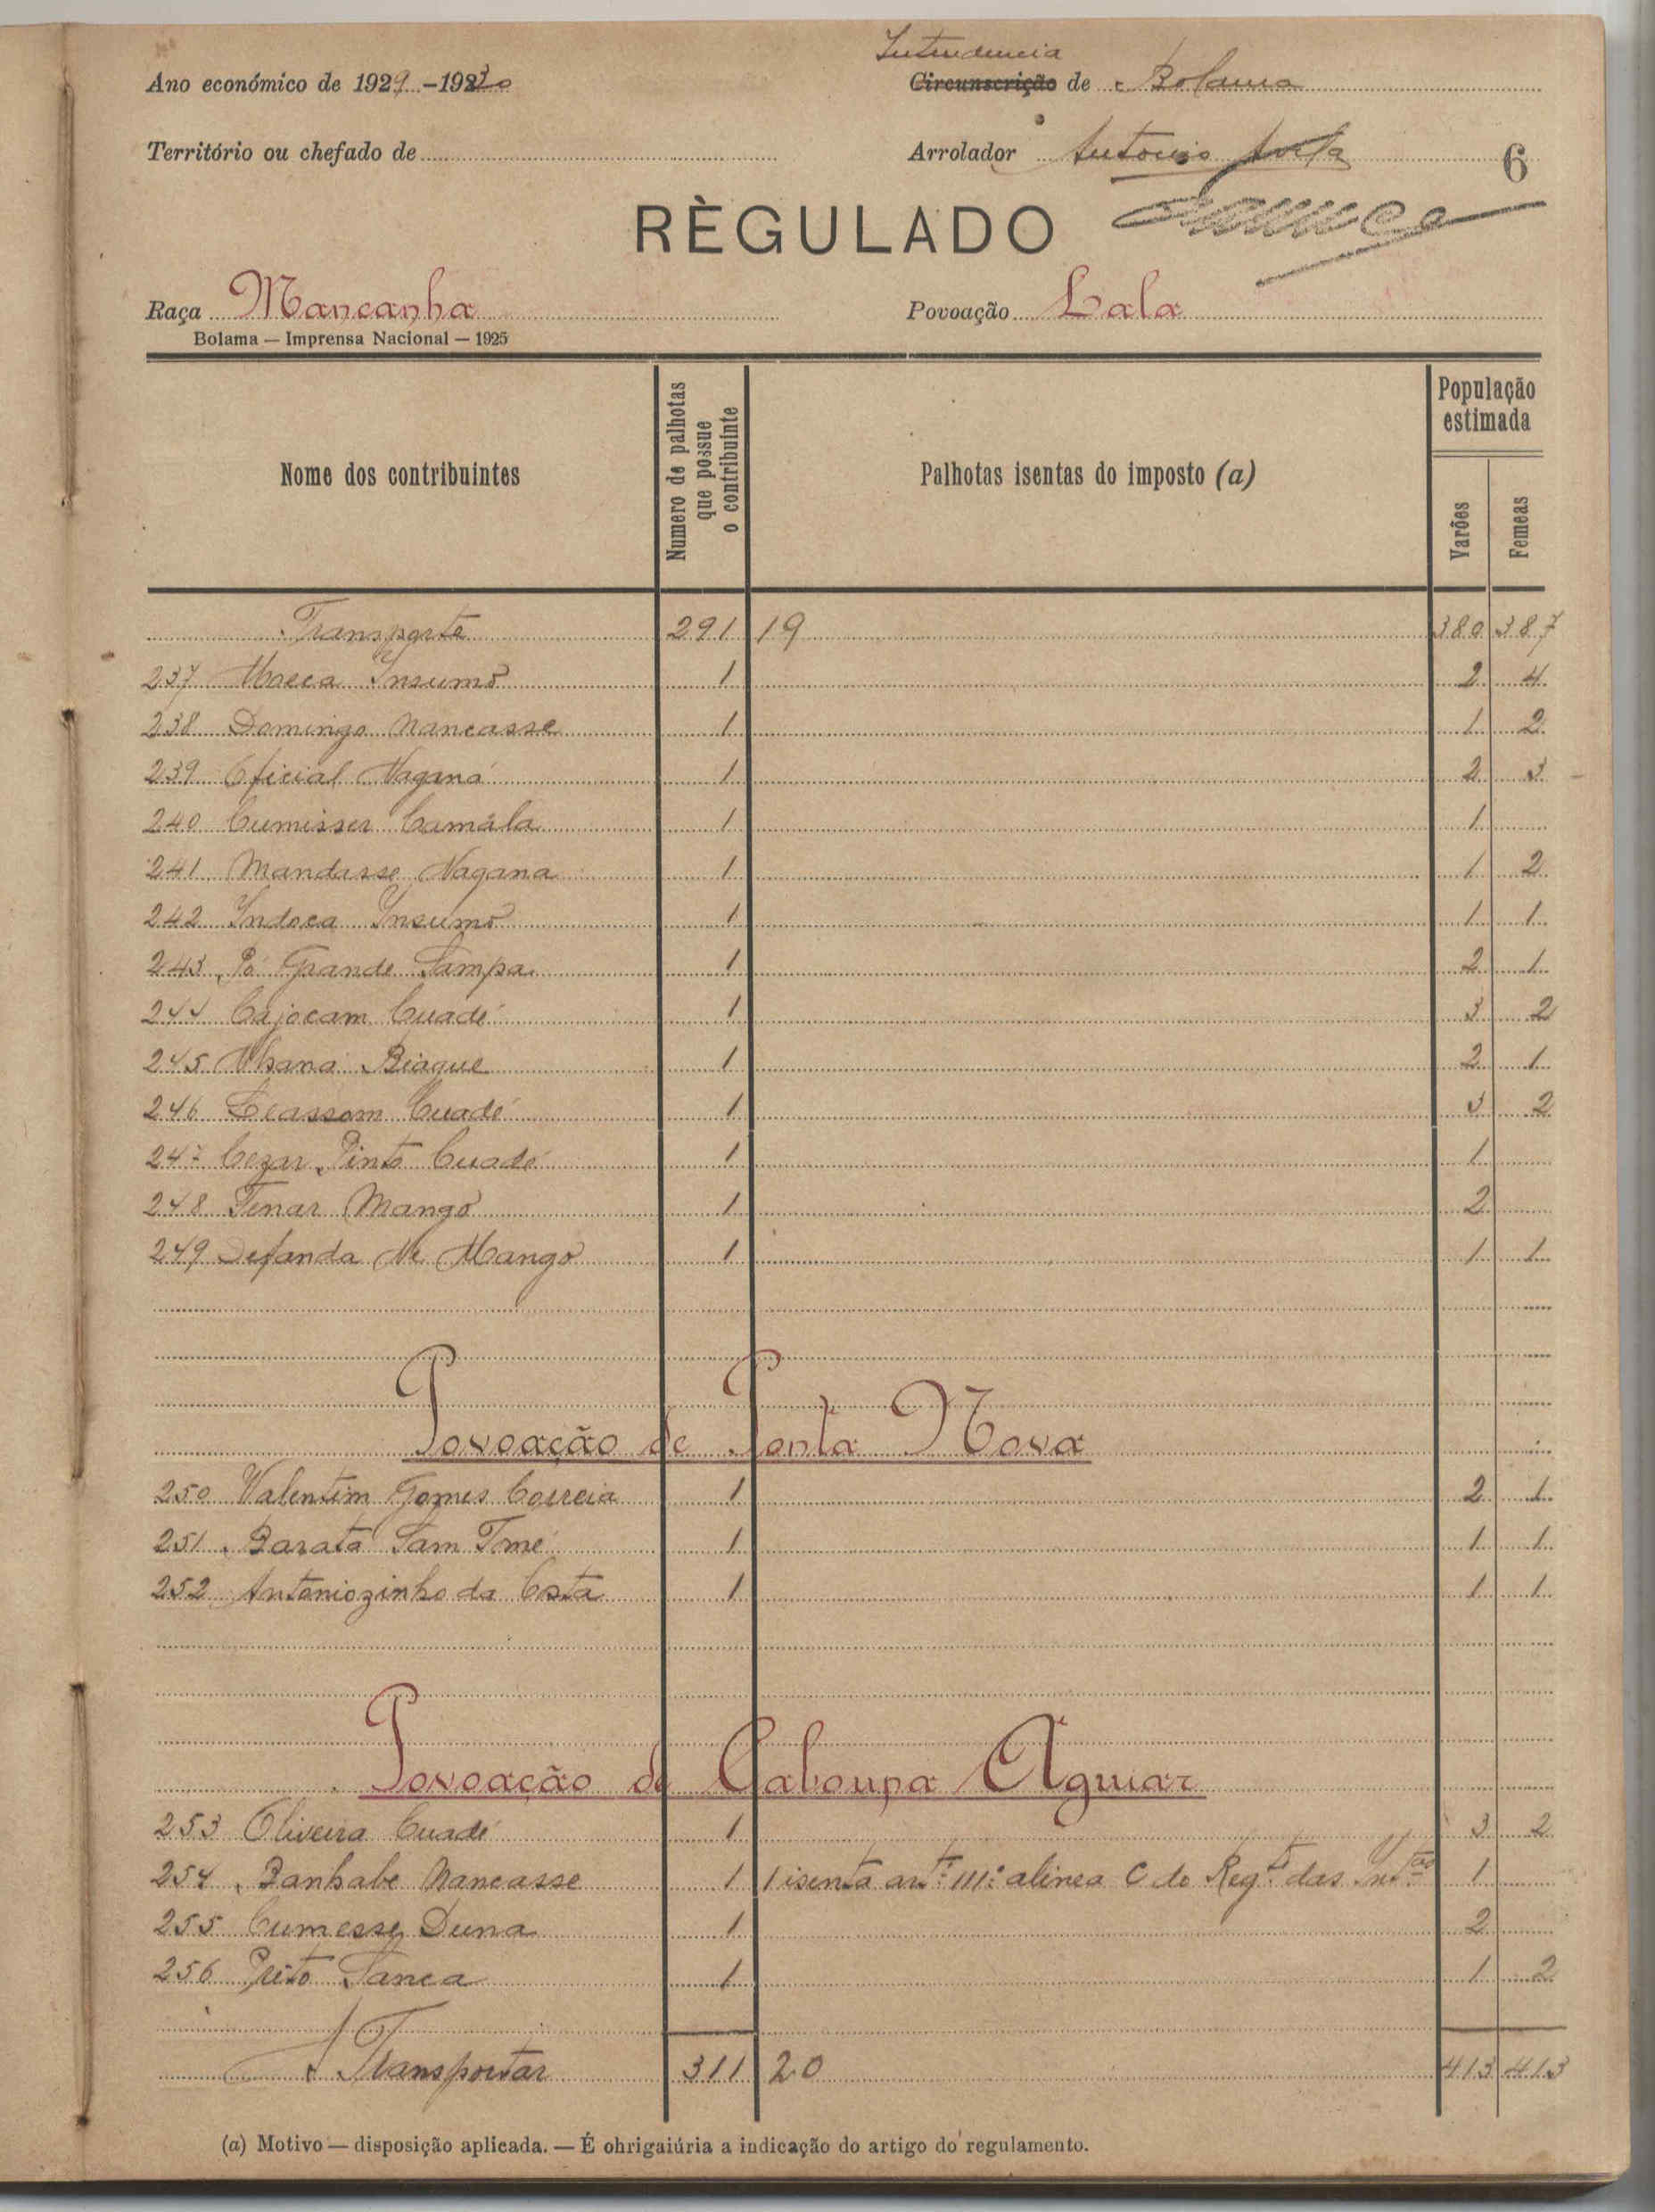 Intendencia
Ano económico de 1929-1930 Circunscrição de Bolama
Território ou chefado de Arrolador Antonio
6
RÈGULADO
Raça Mancanha Povoação Lala
Bolama — Imprensa Nacional — 1925
Nome dos contribuintes
Numero de palhotas que possue o contribuinte
Palhotas isentas do imposto (a)
População estimada
Varões
Femeas
Transporte 291 19 380 387
237 Insumó 1 2 4
238 Domingo Nancasse 1 1 2
239 Oficial Naganá 1 2 3
240 Cumisser Camála 1 1
241 Mandasse Nagana 1 1 2
242 Indoca Insumó 1 1 1
243 Pó Grande Sampa 1 2 1
244 Cajocam Cuadé 1 3 2
245 Biague 1 2 1
246 Cuadé 1 3 2
247 Cezar Pinto Cuadé 1 1
248 Tenar Mangó 1 2
249 Defanda Mangó 1 1 1
Povoação de Ponta Nova
250 Valentim Gomes Correia 1 2 1
251 Barata Sam Tmé 1 1 1
252 Antoniozinho da Costa 1 1 1
Povoação de Caboupa Aguiar
253 Oliveira Cuadé 1 3 2
254 Banhabe Nancasse 1 1 isenta artº 111º alinea C do Regtº das 1
255 Cumesse Duna 1 2
256 Preto Sanca 1 1 2
A Transportar 311 20 413 413
(a) Motivo — disposição aplicada. — É ohrigaiúria a indicação do artigo do regulamento.